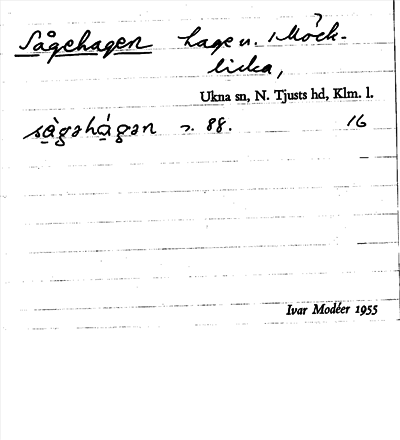 Sågehagen hage u. Möck-
licka,
Ukna sn, N. Tjusts hd, Klm. l.
88. 16
Ivar Modéer 1955